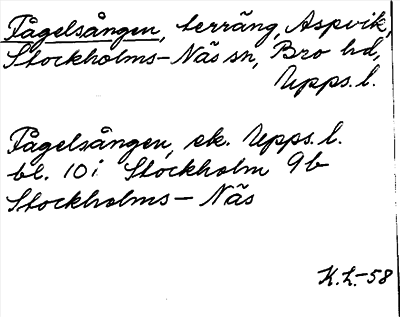 Fågelsången, terräng, Aspvik,
Stockholms-Näs sn, Bro hd,
Upps. l.
Fågelsången, ek. Upps. l.
bl. 10 i Stockholm 9b
Stockholms-Näs
K.L.-58